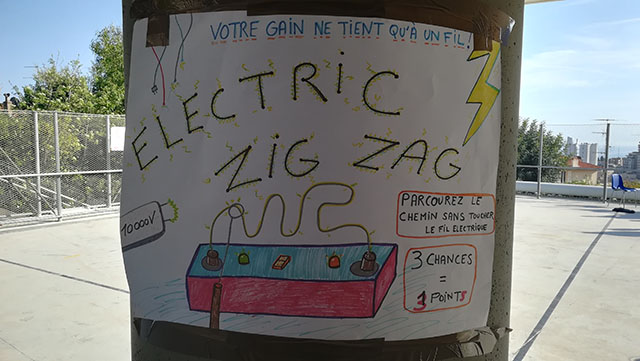 VOTRE GAIN NE TIENT QU'À UN FIL!
ELECTRIC
ZIG ZAG
10000V
PARCOUREZ LE
CHEMIN SANS TOUCHER
LE FIL ELECTRIQUE
3 CHANCES
=